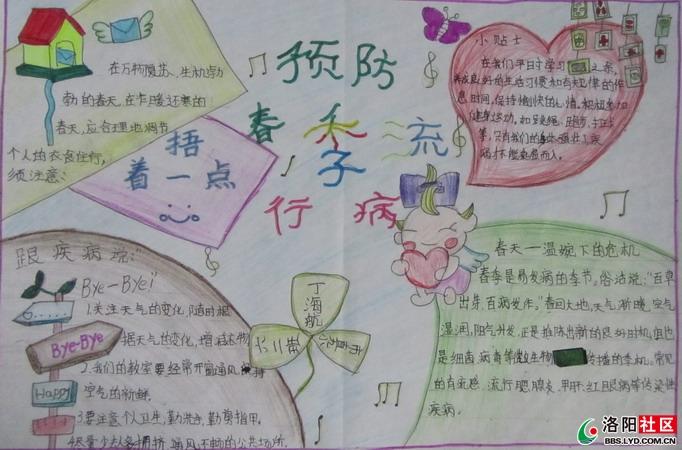 预防
春季流
行病
在万物复苏、生机勃
勃的春天,在乍暖还寒的
春天,应合理地调节
个人的衣食住行,
须注意:
捂
着一点
小贴士
在我们平日中学习之余,
养成良好的生活习惯和有规律的作
息时间,保持愉快的心情。积极参加
健身运动,如跳绳、跑步、打球
等,只有我们的身体强壮了疾
病才不能乘虚而入。
跟疾病说:
Bye-Bye!
1.关注天气的变化,随时根
据天气的变化,增减衣物
2.我们的教室要经常开窗通风保持
空气的新鲜
3.要注意个人卫生,勤洗手,勤剪指甲。
4.尽量少去人多拥挤,通风不畅的公共场所.
Bye-Bye
Happy
丁海航
春天一温婉下的危机
春季是易发病的季节。俗话说:"百草
出芽,百病发作。"春回大地,天气渐暖,空气
湿润,阳气升发,正是推陈出新的良好时机,但也
是细菌病毒等微生物传播的季机。常见
的有流感、流行腮腺炎、甲肝、红眼病等传染性
疾病。
洛阳社区
BBS.LYD.COM.CN